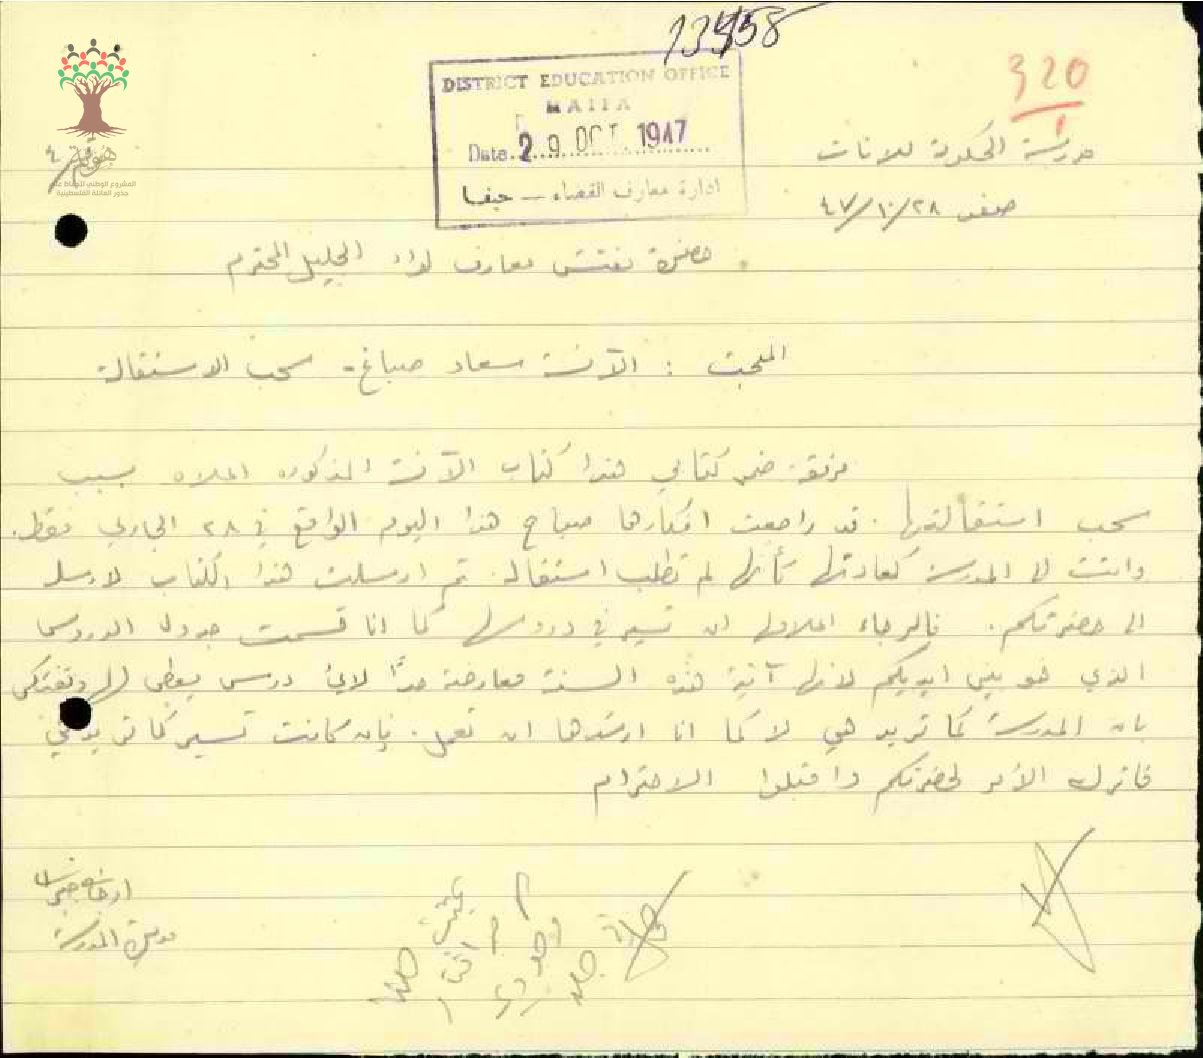 13458
320
DISTRICT EDUCATION OFFICE
HAIFA
Date 29 OCT 1947
ادارة معارف القضاء – حيفا
مدرسة الحكومة للاناث
صفد ٢٨/١٠/٤٧
حضرة مفتش معارف لواء الجليل المحترم
المبحث : الآنسة سعاد صباغ - سحب الاستقالة
مرفق ضمن كتابي هذا كتاب الآنسة المذكورة اعلاه بسبب
سحب استقالتها . قد راجعت افكارها صباح هذا اليوم الواقع في ٢٨ الجاري فقط.
واتت الى المدرسة كعادتها كأنها لم تطلب استقالة. ثم ارسلت هذا الكتاب لارسله
الى حضرتكم. فالرجاء اعلامها ان تسير في دروسها كما انا قسمت جدول الدروس
الذي هو بين ايديكم لانها آتية هذه السنة معارضة جدًا لأي درس يعطى لها وتفتكر
بان المدرسة كما تريد هي لا كما انا ارشدها ان تعمل. فإن كانت تسير كما تريد هي
فاترك الأمر لحضرتكم واقبلوا الاحترام
مديرة المدرسة
المشروع الوطني للحفاظ على
جذور العائلة الفلسطينية